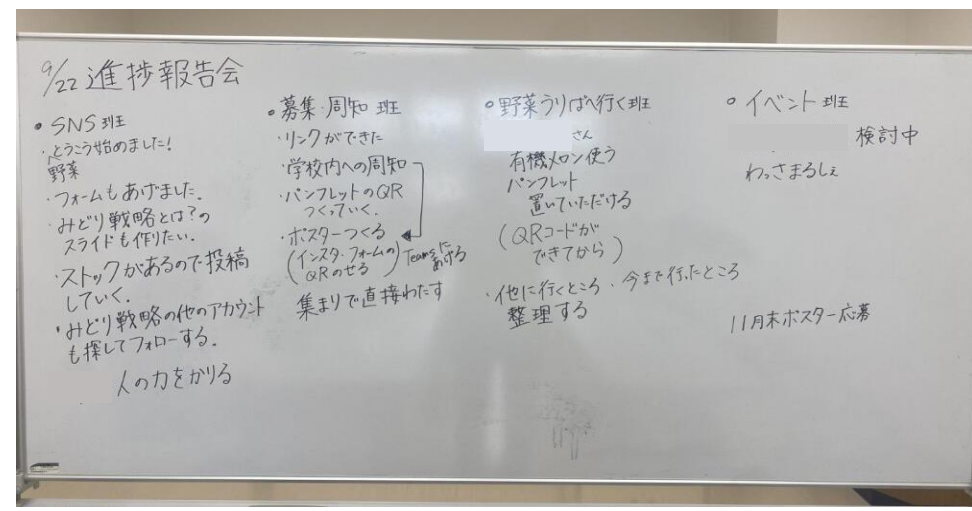 9/22 進捗報告会
• SNS班
・とうこう始めました!
野菜
・フォームもあげました.
・みどり戦略とは?の
スライドも作りたい.
・ストックがあるので投稿
していく.
・みどり戦略の他のアカウント
も探してフォローする.
人の力をかりる
• 募集・周知 班
・リンクができた
・学校内への周知
・パンフレットのQR
つくっていく.
・ポスターつくる
(インスタ・フォームの
QRのせる)
Teamsに
あげる
集まりで直接わたす
• 野菜うりばへ行く班
さん
有機メロン使う
パンフレット
置いていただける
(QRコードが
できてから)
・他に行くところ・今まで行ったところ
整理する
○ イベント班
検討中
わっさまるしぇ
11月末ポスター応募